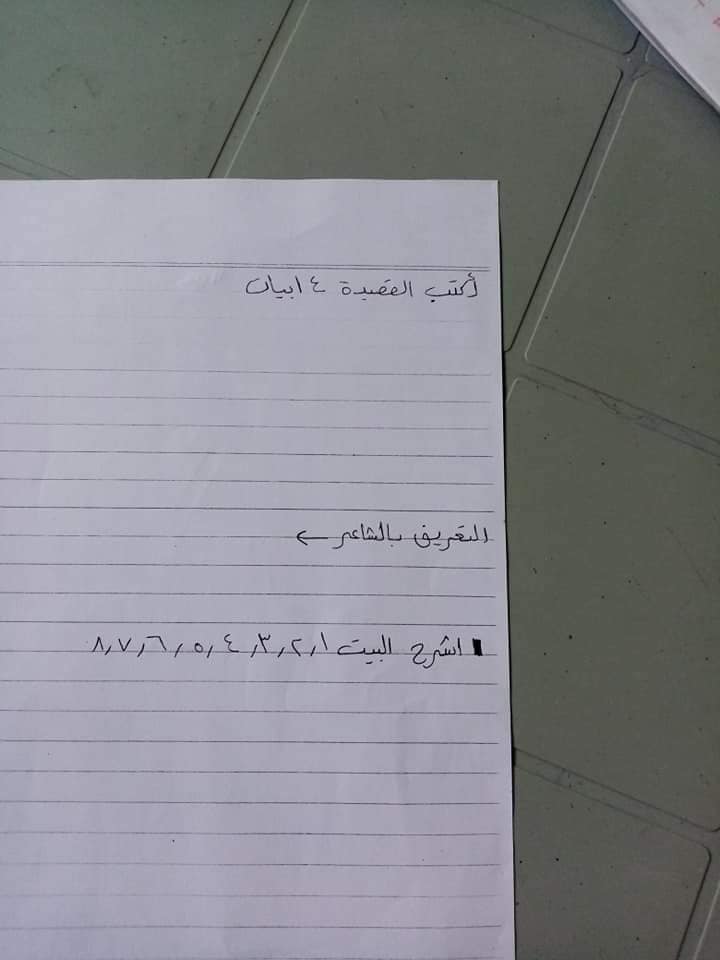 أكتب القصيدة ٤ ابيات
التعريف بالشاعر ←
اشرح البيت ١,٢,٣,٤,٥,٦,٧,٨